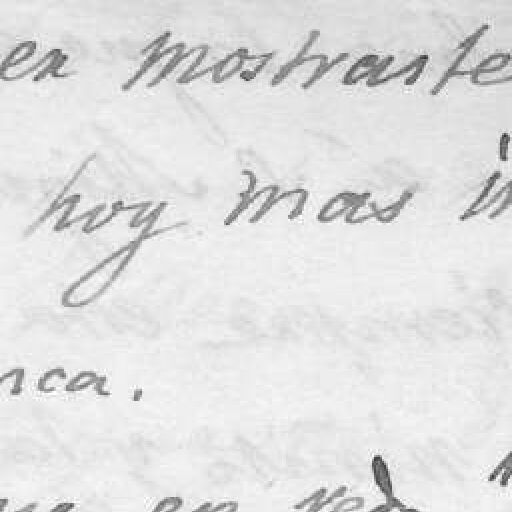 en mostraste
hoy mas in
nca.
en